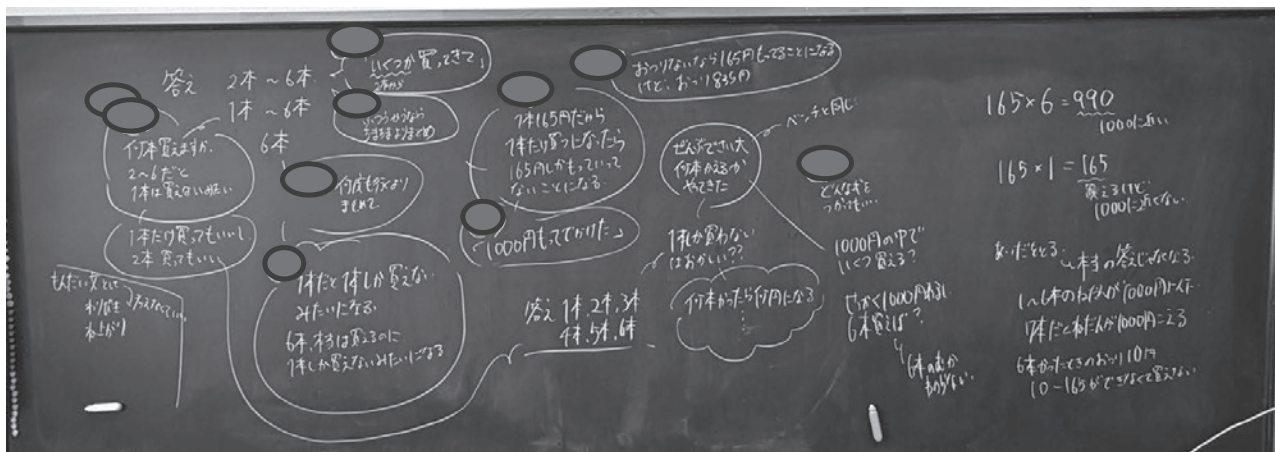 答え 2本～6本
1本～6本
6本
いくつか買ってきて」
2本から
何本買えますか。
2～6だと
1本は買えない
1本だけ買ってもいいし、
2本買ってもいい。
何度も行くより
まとめて
1本だと1本しか買えない
みたいになる。
6本、本当は買えるのに
1本しか買えないみたいになる
1本165円だから
1本だけ買うになったら
165円しかもっていって
ないことになる。
「1000円もってでかけた」
おつりないなら165円もってることになる
けど、おつり835円
ぜんぶでさい大
何本かえるか
やってきた
ベンチと同じ
1本しか買わない
はおかしい??
何本かったら何円になる
答え 1本,2本,3本
4本,5本,6本
つかってもいい
1000円の中で
いくつ買える?
せっかく1000円あるし
6本買えば?
わからない。
165×6=990
1000に近い
165×1=165
買えるけど
1000に近くない。
あいだをとる
本当の答えじゃなくなる
1～6本のねだんが1000円以下
7本だとねだんが1000円こえる
6本かったときのおつり10円
10-165ができなくて買えない